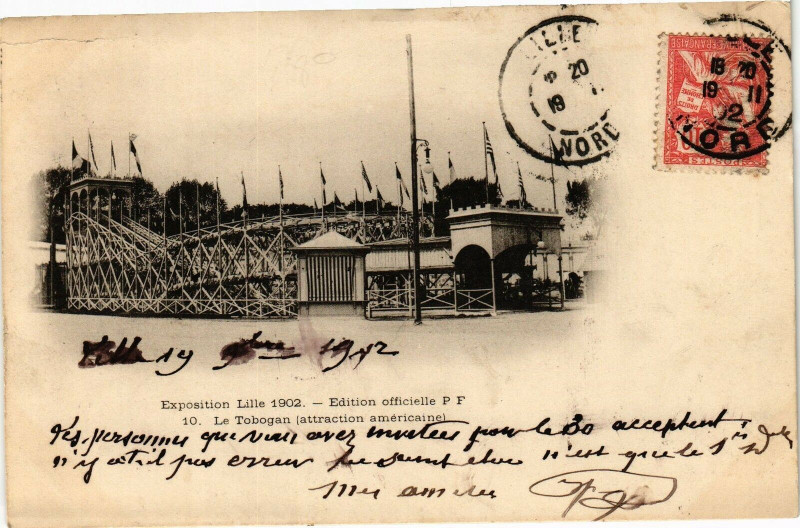 LILLE
20
19
NORD
RÉPUBLIQUE FRANÇAISE
DROITS DE L'HOMME
POSTES
18 20
19 11
02
NORD
Lille 19 9bre 1902
Exposition Lille 1902. — Edition officielle P F
10. Le Tobogan (attraction américaine)
Les personnes que vous avez invitées pour le 30 acceptent
n'y a t il pas erreur n'est que le 1er